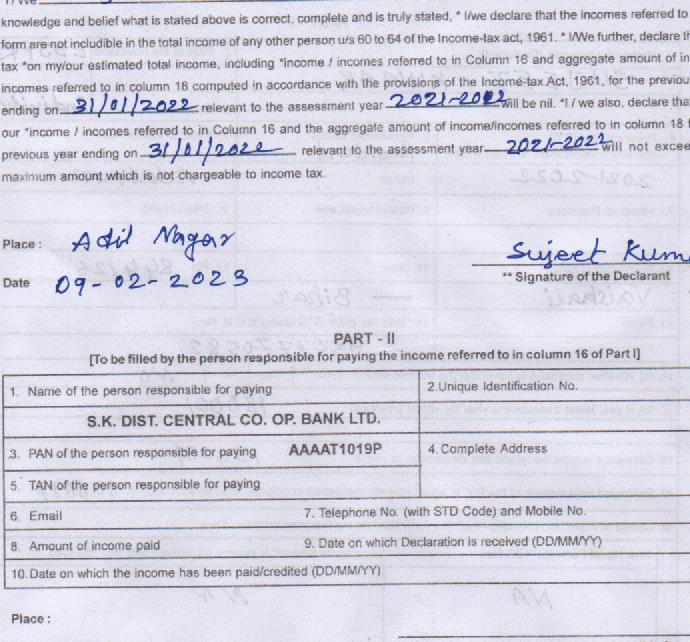 knowledge and belief what is stated above is correct, complete and is truly stated, * I/we declare that the incomes referred to
form are not includible in the total income of any other person u/s 60 to 64 of the Income-tax act, 1961. * I/We further, declare th
tax *on my/our estimated total income, including *income / incomes referred to in Column 16 and aggregate amount of in
incomes referred to in column 18 computed in accordance with the provisions of the Income-tax Act, 1961, for the previou
ending on 31/01/2022 relevant to the assessment year 2021-2022 will be nil. *I / we also, declare tha
our *income / incomes referred to in Column 16 and the aggregate amount of income/incomes referred to in column 18 f
previous year ending on 31/01/2022 relevant to the assessment year 2021-2022 will not excee
maximum amount which is not chargeable to income tax.
Place : Adil Nagar
Sujeet Kum
Date 09-02-2023
** Signature of the Declarant
PART - II
[To be filled by the person responsible for paying the income referred to in column 16 of Part I]
1. Name of the person responsible for paying
2.Unique Identification No.
S.K. DIST. CENTRAL CO. OP. BANK LTD.
3. PAN of the person responsible for paying AAAAT1019P
4. Complete Address
5. TAN of the person responsible for paying
6. Email
7. Telephone No. (with STD Code) and Mobile No.
8. Amount of income paid
9. Date on which Declaration is received (DD/MM/YY)
10. Date on which the income has been paid/credited (DD/MM/YY)
Place :